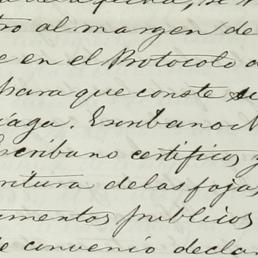 tro al margen de
e en el Protocolo
para que conste
iaga. Escribano
scribano certifico y
ritura de las fojas
umentos publicos
e convenio declar